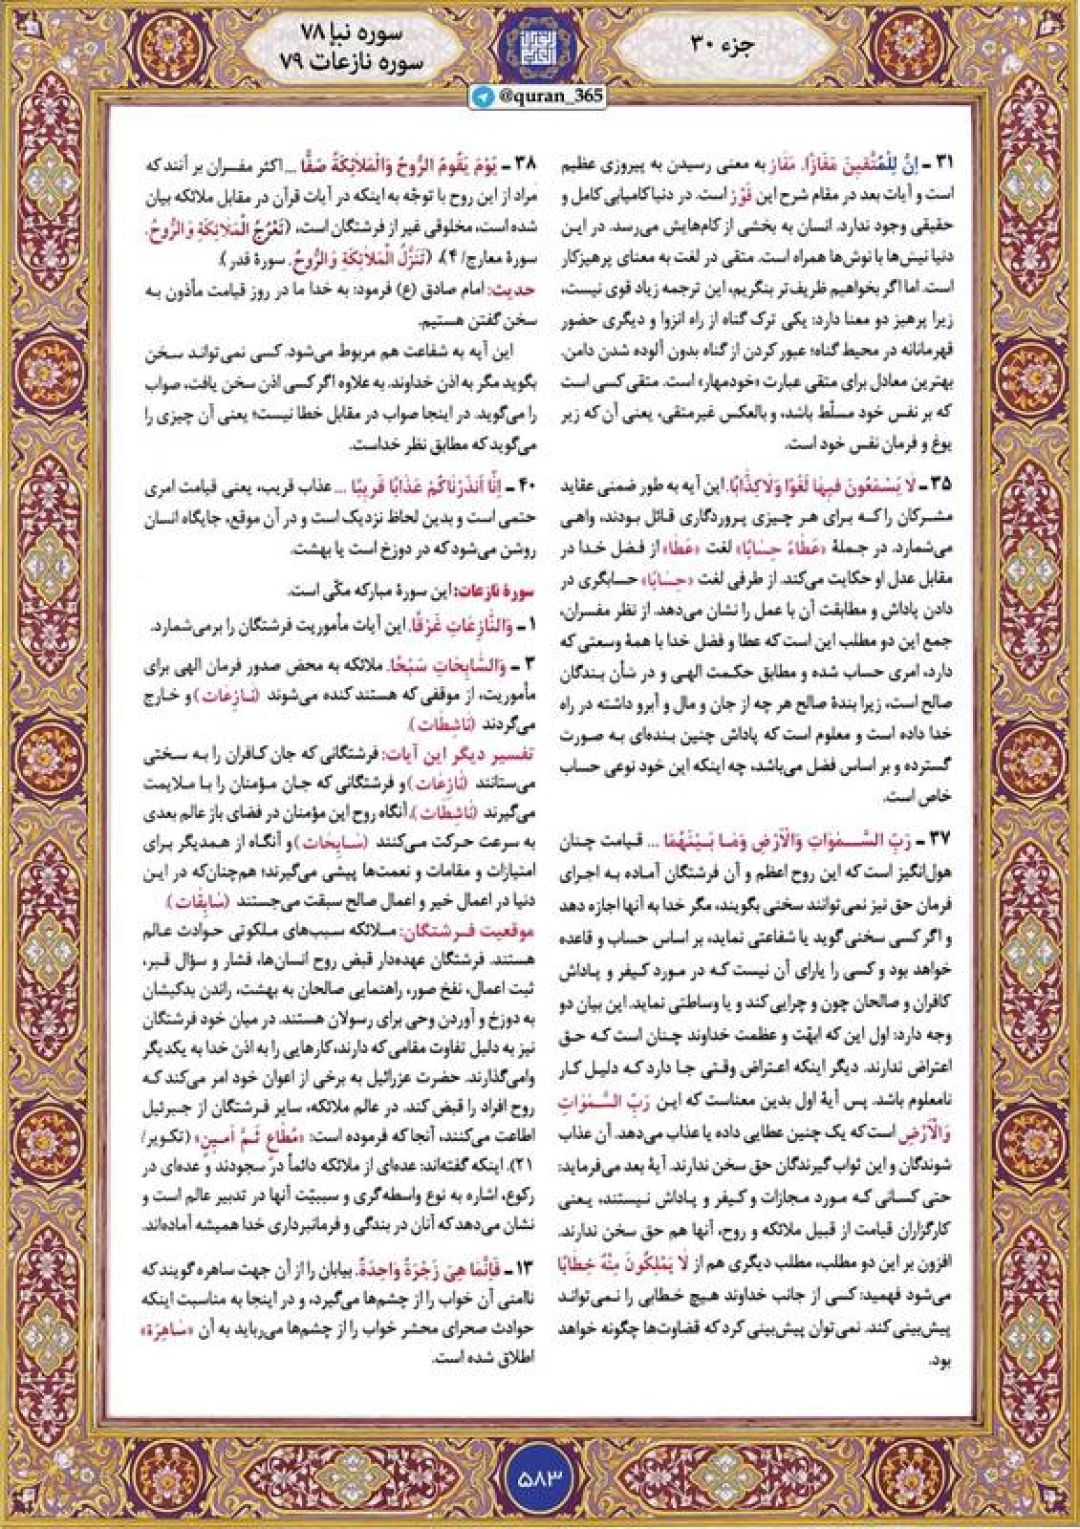 جزء ۳۰
سوره نبإ ۷۸
سوره نازعات ۷۹
@quran_365
۳۱ ـ اِنَّ لِلْمُتَّقينَ مَفَازًا. مَفَاز به معنی رسیدن به پیروزی عظیم
است و آیات بعد در مقام شرح این فَوْز است. در دنیا کامیابی کامل و
حقیقی وجود ندارد. انسان به بخشی از کام‌هایش می‌رسد. در این
دنیا نیش‌ها با نوش‌ها همراه است. متقی در لغت به معنای پرهیزکار
است. اما اگر بخواهیم ظریف‌تر بنگریم، این ترجمه زیاد قوی نیست،
زیرا پرهیز دو معنا دارد: یکی ترک گناه از راه انزوا و دیگری حضور
قهرمانانه در محیط گناه؛ عبور کردن از گناه بدون آلوده شدن دامن.
بهترین معادل برای متقی عبارت «خودمهار» است. متقی کسی است
که بر نفس خود مسلّط باشد، و بالعکس غیرمتقی، یعنی آن که زیر
یوغ و فرمان نفس خود است.
۳۵ ـ لَا يَسْمَعُونَ فيهَا لَغْوًا وَلَاكِذَّابًا. این آیه به طور ضمنی عقاید
مشرکان را که برای هر چیزی پروردگاری قائل بودند، واهی
می‌شمارد. در جملهٔ «عَطَاءً حِسَابًا» لغت «عَطَا» از فضل خدا در
مقابل عدل او حکایت می‌کند. از طرفی لغت «حِسَابًا» حسابگری در
دادن پاداش و مطابقت آن با عمل را نشان می‌دهد. از نظر مفسران،
جمع این دو مطلب این است که عطا و فضل خدا با همهٔ وسعتی که
دارد، امری حساب شده و مطابق حکمت الهی و در شأن بندگان
صالح است، زیرا بندهٔ صالح هر چه از جان و مال و آبرو داشته در راه
خدا داده است و معلوم است که پاداش چنین بنده‌ای به صورت
گسترده و بر اساس فضل می‌باشد، چه اینکه این خود نوعی حساب
خاص است.
۳۷ ـ رَبِّ السَّمٰوَاتِ وَالْاَرْضِ وَمَا بَيْنَهُمَا ... قیامت چنان
هول‌انگیز است که این روح اعظم و آن فرشتگان آماده به اجرای
فرمان حق نیز نمی‌توانند سخنی بگویند، مگر خدا به آنها اجازه دهد
و اگر کسی سخنی گوید یا شفاعتی نماید، بر اساس حساب و قاعده
خواهد بود و کسی را یارای آن نیست که در مورد کیفر و پاداش
کافران و صالحان چون و چرایی کند و یا وساطتی نماید. این بیان دو
وجه دارد: اول این که ابهّت و عظمت خداوند چنان است که حق
اعتراض ندارند. دیگر اینکه اعتراض وقتی جا دارد که دلیل کار
نامعلوم باشد. پس آیهٔ اول بدین معناست که این رَبِّ السَّمٰوَاتِ
وَالْاَرْضِ است که یک چنین عطایی داده یا عذاب می‌دهد. آن عذاب
شوندگان و این ثواب گیرندگان حق سخن ندارند. آیهٔ بعد می‌فرماید:
حتی کسانی که مورد مجازات و کیفر و پاداش نیستند، یعنی
کارگزاران قیامت از قبیل ملائکه و روح، آنها هم حق سخن ندارند.
افزون بر این دو مطلب، مطلب دیگری هم از لَا يَمْلِكُونَ مِنْهُ خِطَابًا
می‌شود فهمید: کسی از جانب خداوند هیچ خطابی را نمی‌تواند
پیش‌بینی کند. نمی‌توان پیش‌بینی کرد که قضاوت‌ها چگونه خواهد
بود.
۳۸ ـ يَوْمَ يَقُومُ الرُّوحُ وَالْمَلَائِكَةُ صَفًّا ... اکثر مفسران بر آنند که
مراد از این روح با توجّه به اینکه در آیات قرآن در مقابل ملائکه بیان
شده است، مخلوقی غیر از فرشتگان است، (تَعْرُجُ الْمَلَائِكَةُ وَالرُّوحُ.
سورهٔ معارج/ ۴)، (تَنَزَّلُ الْمَلَائِكَةُ وَالرُّوحُ. سورهٔ قدر).
حدیث: امام صادق (ع) فرمود: به خدا ما در روز قیامت مأذون به
سخن گفتن هستیم.
این آیه به شفاعت هم مربوط می‌شود. کسی نمی‌تواند سخن
بگوید مگر به اذن خداوند. به علاوه اگر کسی اذن سخن یافت، صواب
را می‌گوید. در اینجا صواب در مقابل خطا نیست؛ یعنی آن چیزی را
می‌گوید که مطابق نظر خداست.
۴۰ ـ اِنَّا اَنْذَرْنَاكُمْ عَذَابًا قَريبًا ... عذاب قریب، یعنی قیامت امری
حتمی است و بدین لحاظ نزدیک است و در آن موقع، جایگاه انسان
روشن می‌شود که در دوزخ است یا بهشت.
سورهٔ نازعات: این سورهٔ مبارکه مکّی است.
۱ـ وَالنَّازِعَاتِ غَرْقًا. این آیات مأموریت فرشتگان را برمی‌شمارد.
۳ ـ وَالسَّابِحَاتِ سَبْحًا. ملائکه به محض صدور فرمان الهی برای
مأموریت، از موقفی که هستند کنده می‌شوند (نَازِعَات) و خارج
می‌گردند (نَاشِطَات).
تفسیر دیگر این آیات: فرشتگانی که جان کافران را به سختی
می‌ستانند (نَازِعَات) و فرشتگانی که جان مؤمنان را با ملایمت
می‌گیرند (نَاشِطَات)، آنگاه روح این مؤمنان در فضای باز عالم بعدی
به سرعت حرکت می‌کنند (سَابِحَات) و آنگاه از همدیگر برای
امتیازات و مقامات و نعمت‌ها پیشی می‌گیرند؛ هم‌چنان‌که در این
دنیا در اعمال خیر و اعمال صالح سبقت می‌جستند (سَابِقَات).
موقعیت فرشتگان: ملائکه سبب‌های ملکوتی حوادث عالم
هستند. فرشتگان عهده‌دار قبض روح انسان‌ها، فشار و سؤال قبر،
ثبت اعمال، نفخ صور، راهنمایی صالحان به بهشت، راندن بدکیشان
به دوزخ و آوردن وحی برای رسولان هستند. در میان خود فرشتگان
نیز به دلیل تفاوت مقامی که دارند، کارهایی را به اذن خدا به یکدیگر
وامی‌گذارند. حضرت عزرائیل به برخی از اعوان خود امر می‌کند که
روح افراد را قبض کند. در عالم ملائکه، سایر فرشتگان از جبرئیل
اطاعت می‌کنند، آنجا که فرموده است: «مُطَاعٍ ثَمَّ اَمينٍ» (تکویر/
۲۱). اینکه گفته‌اند: عده‌ای از ملائکه دائماً در سجودند و عده‌ای در
رکوع، اشاره به نوع واسطه‌گری و سببیّت آنها در تدبیر عالم است و
نشان می‌دهد که آنان در بندگی و فرمانبرداری خدا همیشه آماده‌اند.
۱۳ ـ فَاِنَّمَا هِیَ زَجْرَةٌ وَاحِدَةٌ. بیابان را از آن جهت ساهره گویند که
ناامنی آن خواب را از چشم‌ها می‌گیرد، و در اینجا به مناسبت اینکه
حوادث صحرای محشر خواب را از چشم‌ها می‌رباید به آن «سَاهِرَة»
اطلاق شده است.
۵۸۳